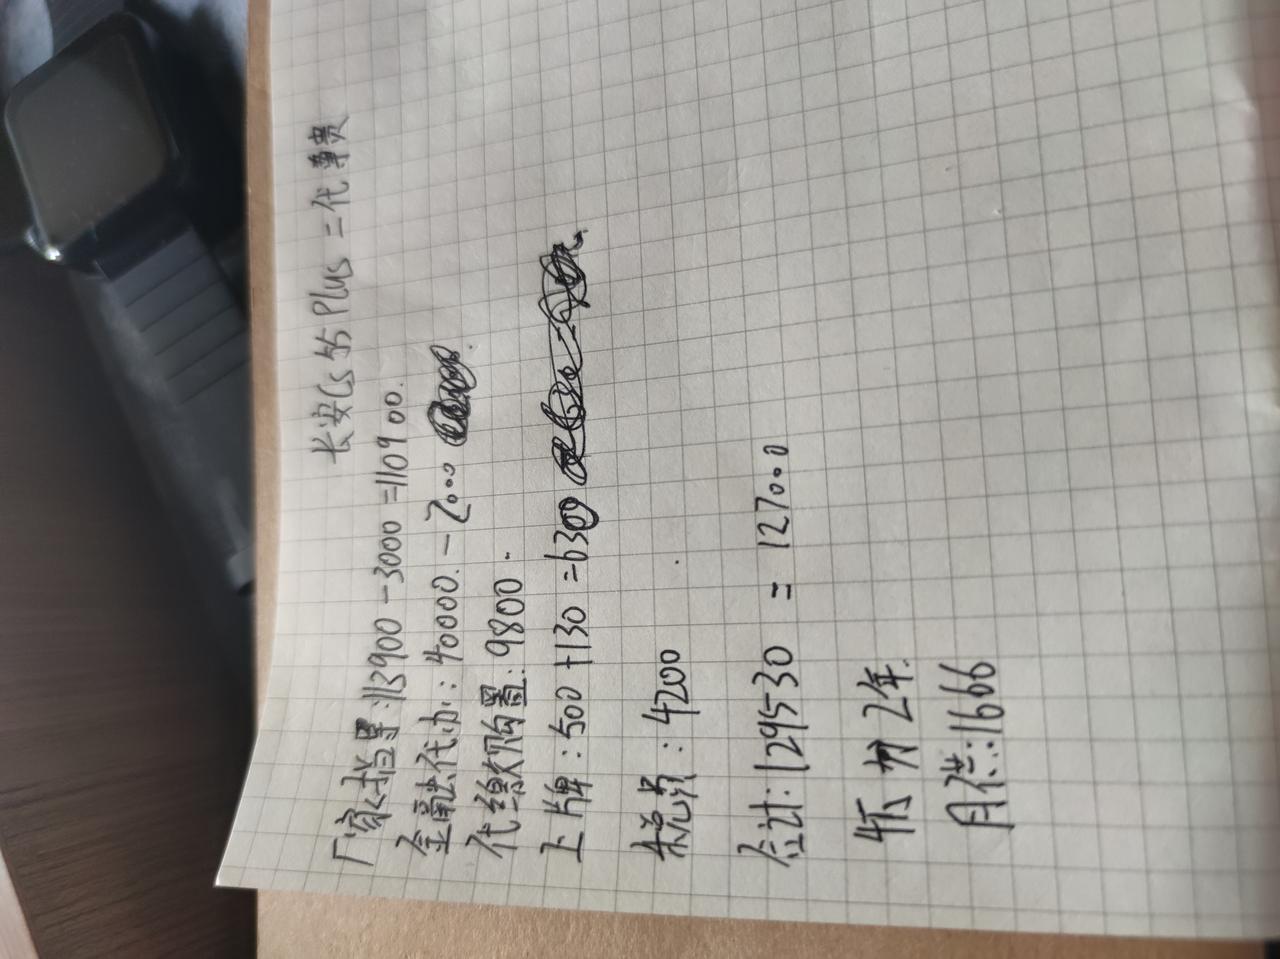 长安CS55Plus 二代尊贵
厂家指导:113900-3000=110900.
金融代办:40000.-2000
代缴购置:9800.
上牌:500+130=630
税点:4200
合计:129530 = 127000
2年.
月供:1666